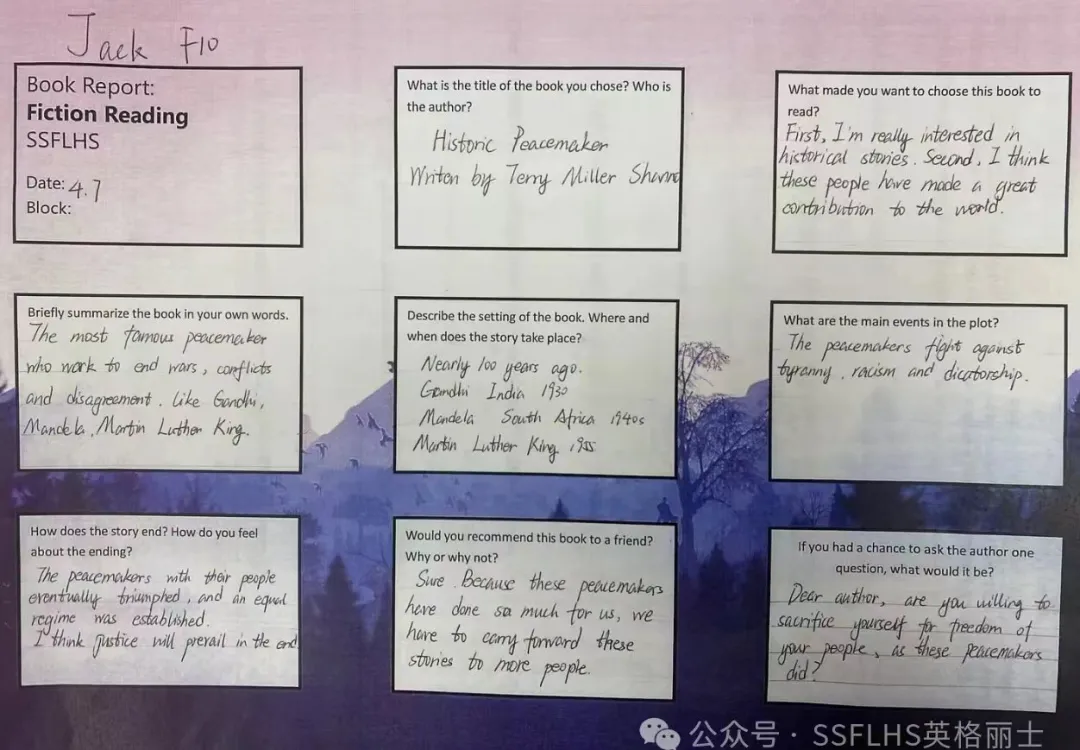 Jack F10
Book Report:
Fiction Reading
SSFLHS
Date: 4.7
Block:
What is the title of the book you chose? Who is
the author?
Historic Peacemaker
Writen by Terry Miller Shanno
What made you want to choose this book to
read?
First, I'm really interested in
historical stories. Second, I think
these people have made a great
contribution to the world.
Briefly summarize the book in your own words.
The most famous peacemaker
who work to end wars, conflicts
and disagreement. Like Gandhi,
Mandela, Martin Luther King.
Describe the setting of the book. Where and
when does the story take place?
Nearly 100 years ago.
Gandhi India 1930
Mandela South Africa 1940s
Martin Luther King 1955
What are the main events in the plot?
The peacemakers fight against
tyranny, racism and dicatorship.
How does the story end? How do you feel
about the ending?
The peacemakers with their people
eventually triumphed, and an equal
regime was established.
I think justice will prevail in the end
Would you recommend this book to a friend?
Why or why not?
Sure. Because these peacemakers
have done so much for us, we
have to carry forward these
stories to more people.
If you had a chance to ask the author one
question, what would it be?
Dear author, are you willing to
sacrifice yourself for freedom of
your people, as these peacemakers
did?
公众号 · SSFLHS英格丽士